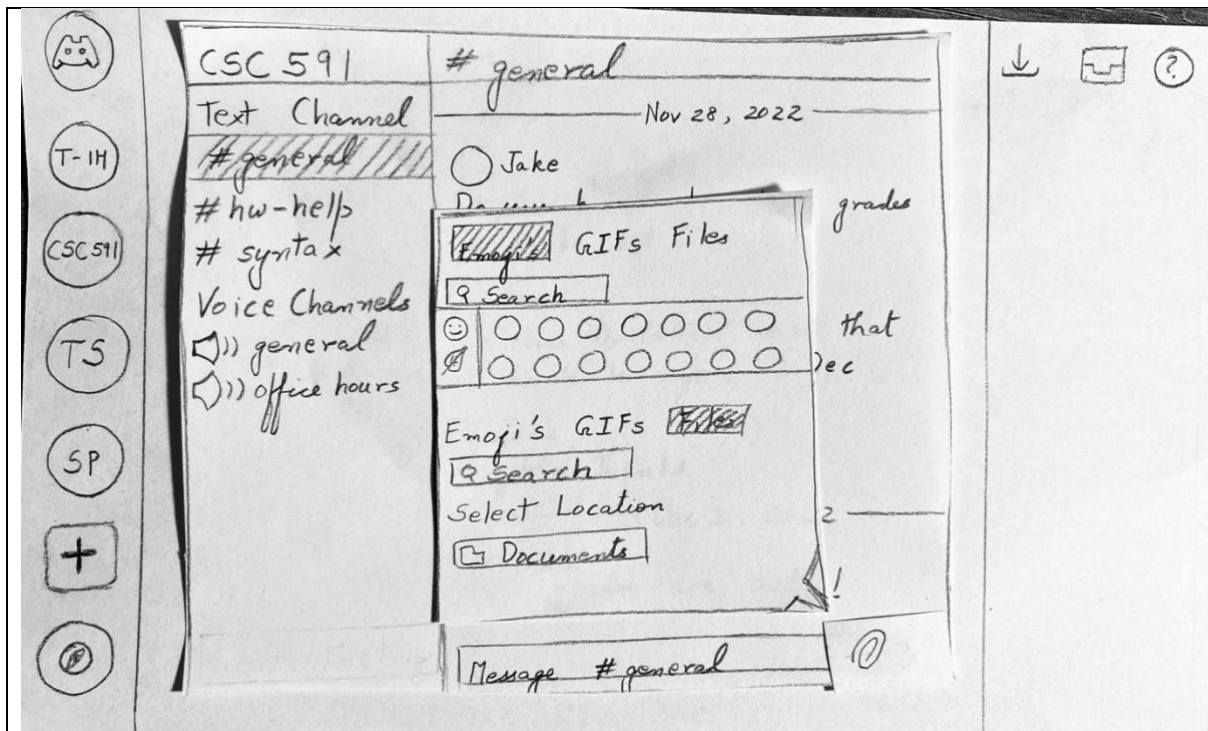 T-IH
CSC 591
TS
SP
CSC 591
Text Channel
# general
# hw-help
# syntax
Voice Channels
general
office hours
# general
Nov 28, 2022
Jake
grades
that
Emoji's GIFs Files
Search
Emoji's GIFs Files
Search
Select Location
Documents
2
!
Message # general
?